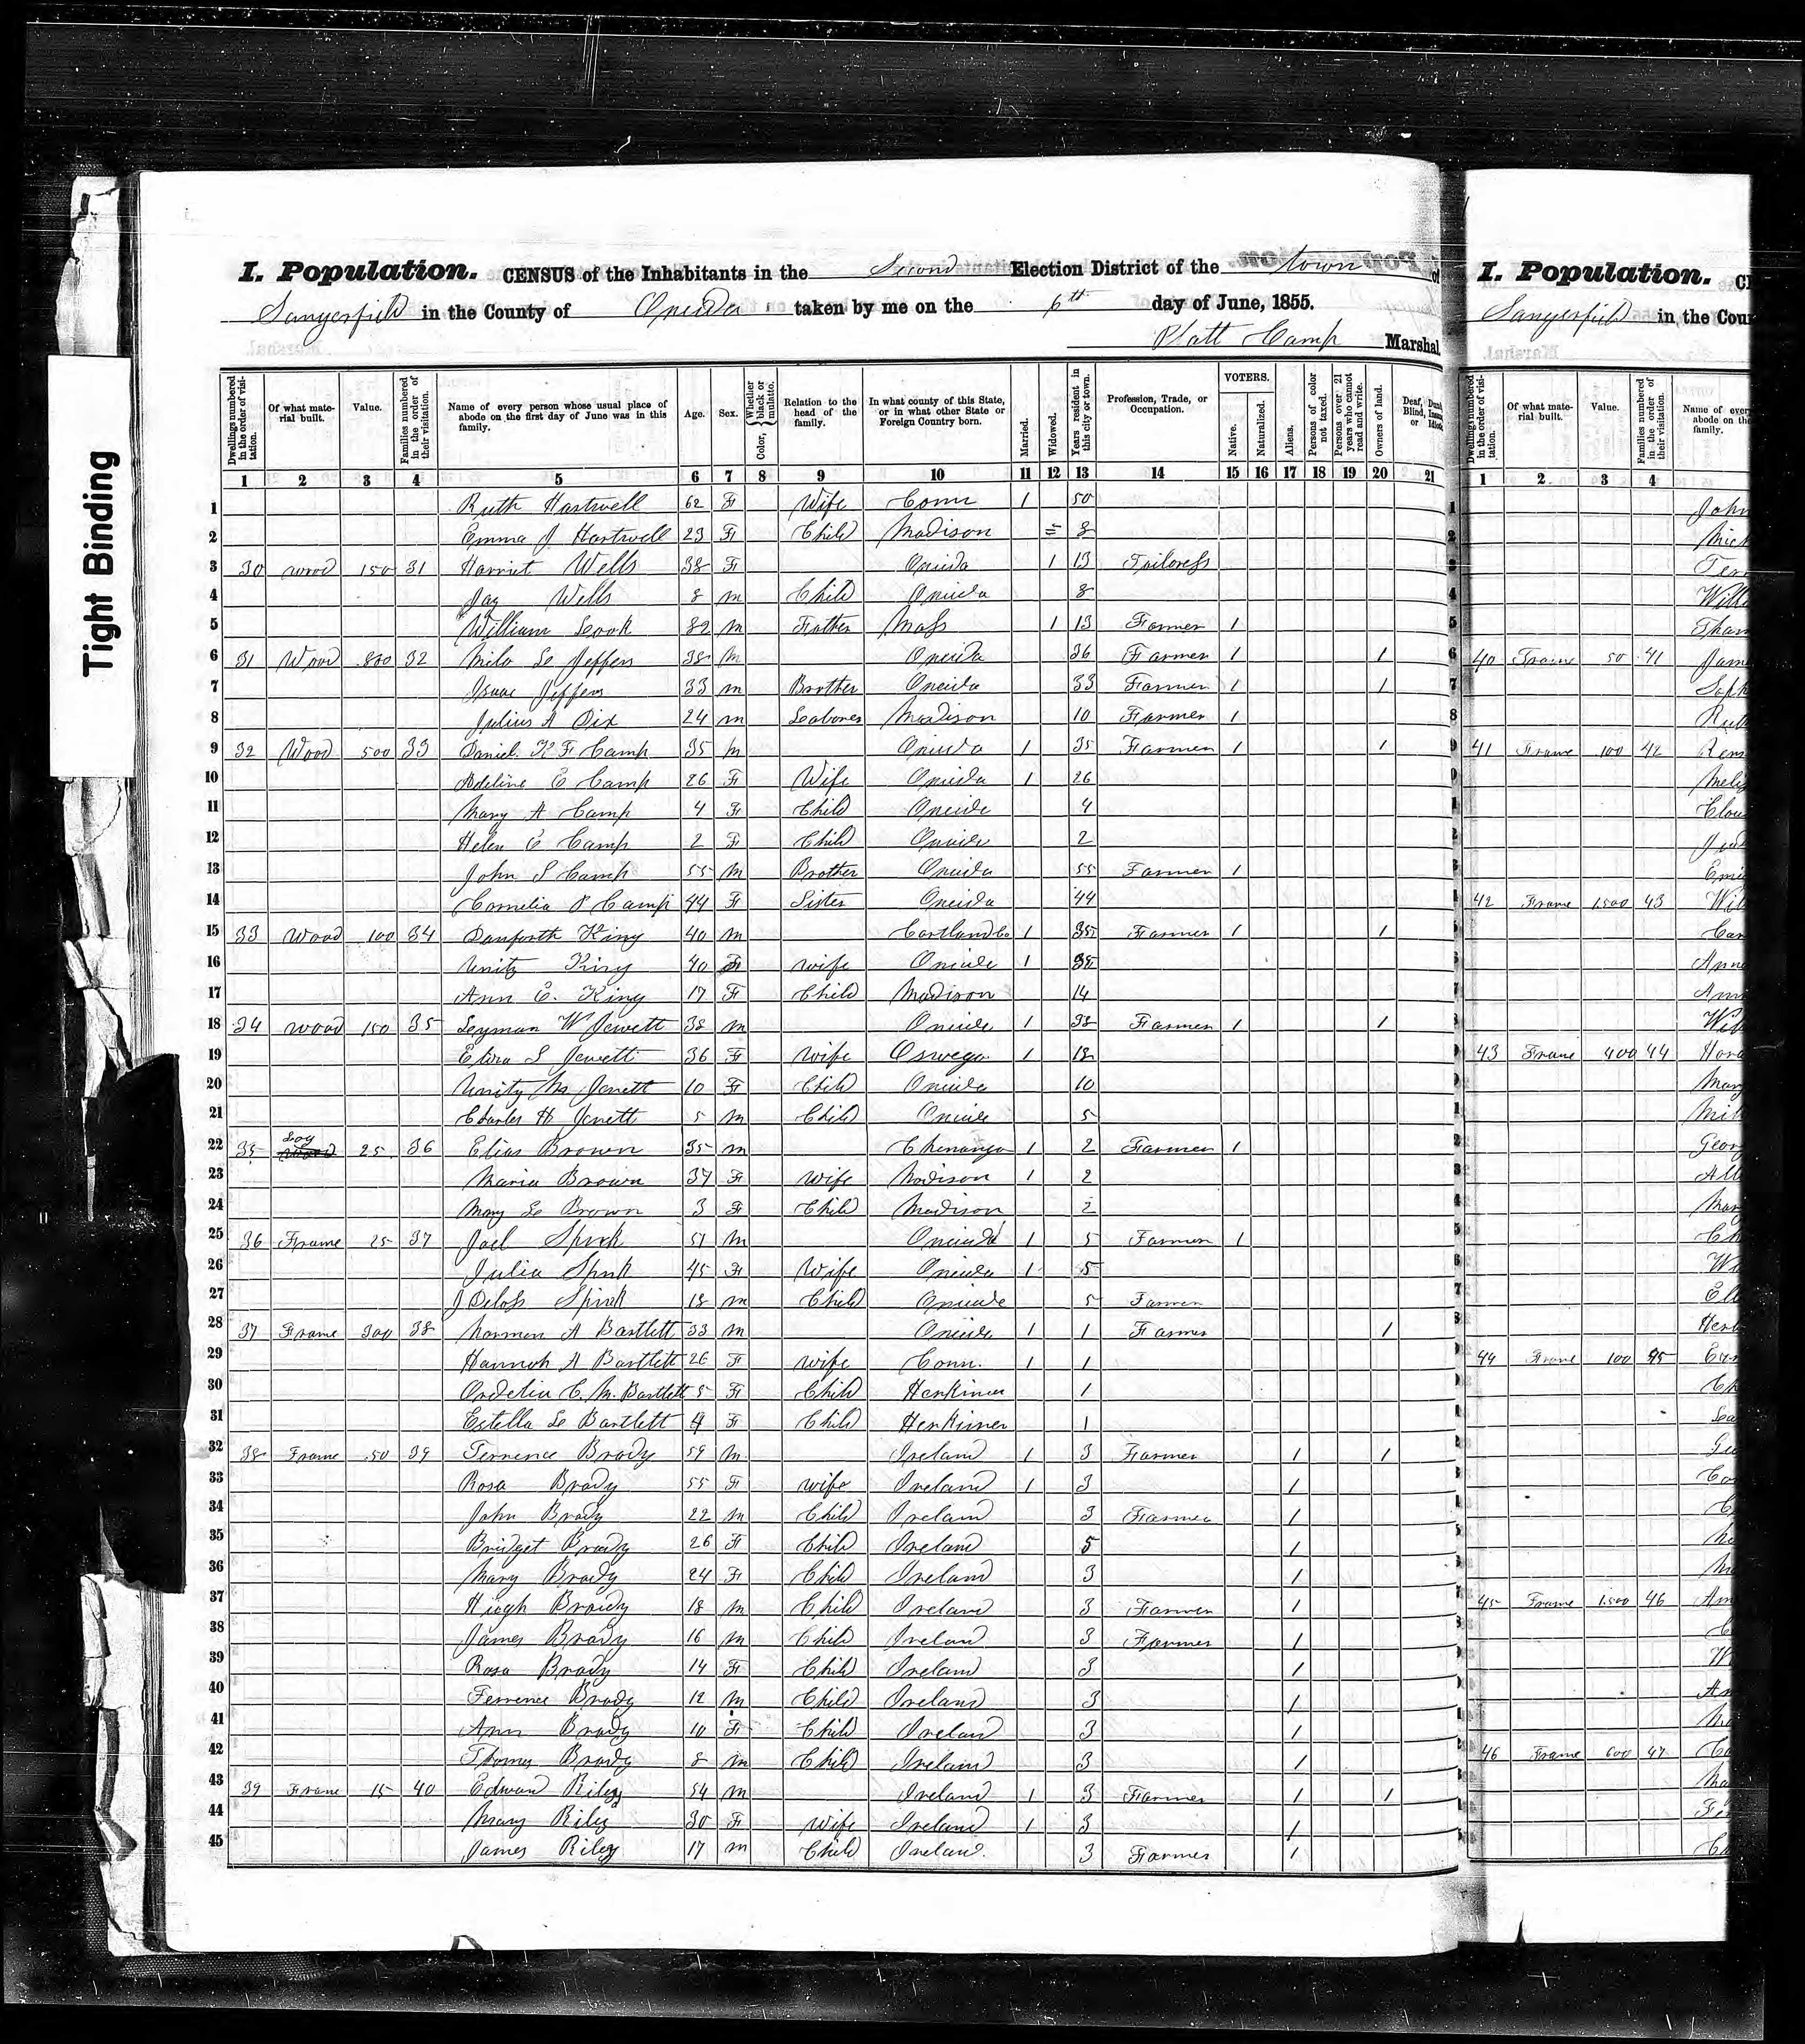 Tight Binding
I. Population. CENSUS of the Inhabitants in the Second Election District of the town of
Sangerfield in the County of Oneida taken by me on the 6th day of June, 1855.
Platt Camp Marshal.
Dwellings numbered in the order of visitation. Of what material built. Value. Families numbered in the order of their visitation. Name of every person whose usual place of abode on the first day of June was in this family. Age. Sex. Color, Whether black or mulatto. Relation to the head of the family. In what county of this State, or in what other State or Foreign Country born. Married. Widowed. Years resident in this city or town. Profession, Trade, or Occupation. VOTERS. Native. Naturalized. Aliens. Persons of color not taxed. Persons over 21 years who cannot read and write. Owners of land. Deaf, Dumb, Blind, Insane or Idiotic.
1 2 3 4 5 6 7 8 9 10 11 12 13 14 15 16 17 18 19 20 21
1 Ruth Hartwell 62 F Wife Conn 1 50
2 Emma J Hartwell 23 F Child Madison 8
3 30 wood 150 31 Harriet Wells 38 F Oneida 1 13 Tailoress
4 Jay Wells 8 m Child Oneida 8
5 William Cook 82 m Father Mass 1 13 Farmer 1
6 31 Wood 800 32 Milo L Jeffers 38 m Oneida 36 Farmer 1 1
7 Isaac Jeffers 33 m Brother Oneida 33 Farmer 1 1
8 Julius A Dix 24 m Laborer Madison 10 Farmer 1
9 32 Wood 500 33 Daniel K F Camp 35 m Oneida 1 35 Farmer 1 1
10 Adeline E Camp 26 F Wife Oneida 1 26
11 Mary A Camp 4 F Child Oneida 4
12 Helen E Camp 2 F Child Oneida 2
13 John S Camp 55 m Brother Oneida 55 Farmer 1
14 Cornelia P Camp 44 F Sister Oneida 44
15 33 Wood 100 34 Danforth King 40 m Cortland Co 1 35 Farmer 1 1
16 Unity King 40 F wife Oneida 1
17 Ann E. King 17 F Child Madison 14
18 34 wood 150 35 Leyman W Jewett 38 m Oneida 1 38 Farmer 1 1
19 Eliza S Jewett 36 F wife Oswego 1 18
20 Unity M Jewett 10 F Child Oneida 10
21 Charles H Jewett 5 m Child Oneida 5
22 35 Log 25 36 Elias Brown 35 m Chenango 1 2 Farmer 1
23 Maria Brown 37 F wife Madison 1 2
24 Mary L Brown 3 F Child Madison 2
25 36 Frame 25 37 Joel Spink 51 m Oneida 1 5 Farmer 1
26 Julia Spink 45 F Wife Oneida 1 5
27 J Deloss Spink 18 m Child Oneida 5 Farmer
28 37 Frame 300 38 Norman A Bartlett 33 m Oneida 1 1 Farmer 1
29 Hannah A Bartlett 26 F wife Conn. 1 1
30 Ordelia C. M. Bartlett 5 F Child Herkimer 1
31 Estella L Bartlett 4 F Child Herkimer 1
32 38 Frame 50 39 Terrence Brady 59 m Ireland 1 3 Farmer 1 1
33 Rosa Brady 55 F wife Ireland 1 3 1
34 John Brady 22 m Child Ireland 3 Farmer 1
35 Bridget Brady 26 F Child Ireland 5 1
36 Mary Brady 24 F Child Ireland 3 1
37 Hugh Brady 18 m Child Ireland 3 Farmer 1
38 James Brady 16 m Child Ireland 3 Farmer 1
39 Rosa Brady 14 F Child Ireland 3 1
40 Terrence Brady 12 m Child Ireland 3 1
41 Ann Brady 10 F Child Ireland 3 1
42 Thomas Brady 8 m Child Ireland 3 1
43 39 Frame 15 40 Edward Riley 54 m Ireland 1 3 Farmer 1 1
44 Mary Riley 30 F Wife Ireland 1 3 1
45 James Riley 17 m Child Ireland 3 Farmer 1
I. Population.
Sangerfield in the
Dwellings numbered in the order of visitation. Of what material built. Value. Families numbered in the order of their visitation.
1 2 3 4
John
40 Frame 50 41
41 Frame 100 42
42 Frame 1500 43
43 Frame 400 44
44 Frame 100 45
45 Frame 1500 46
46 Frame 600 47